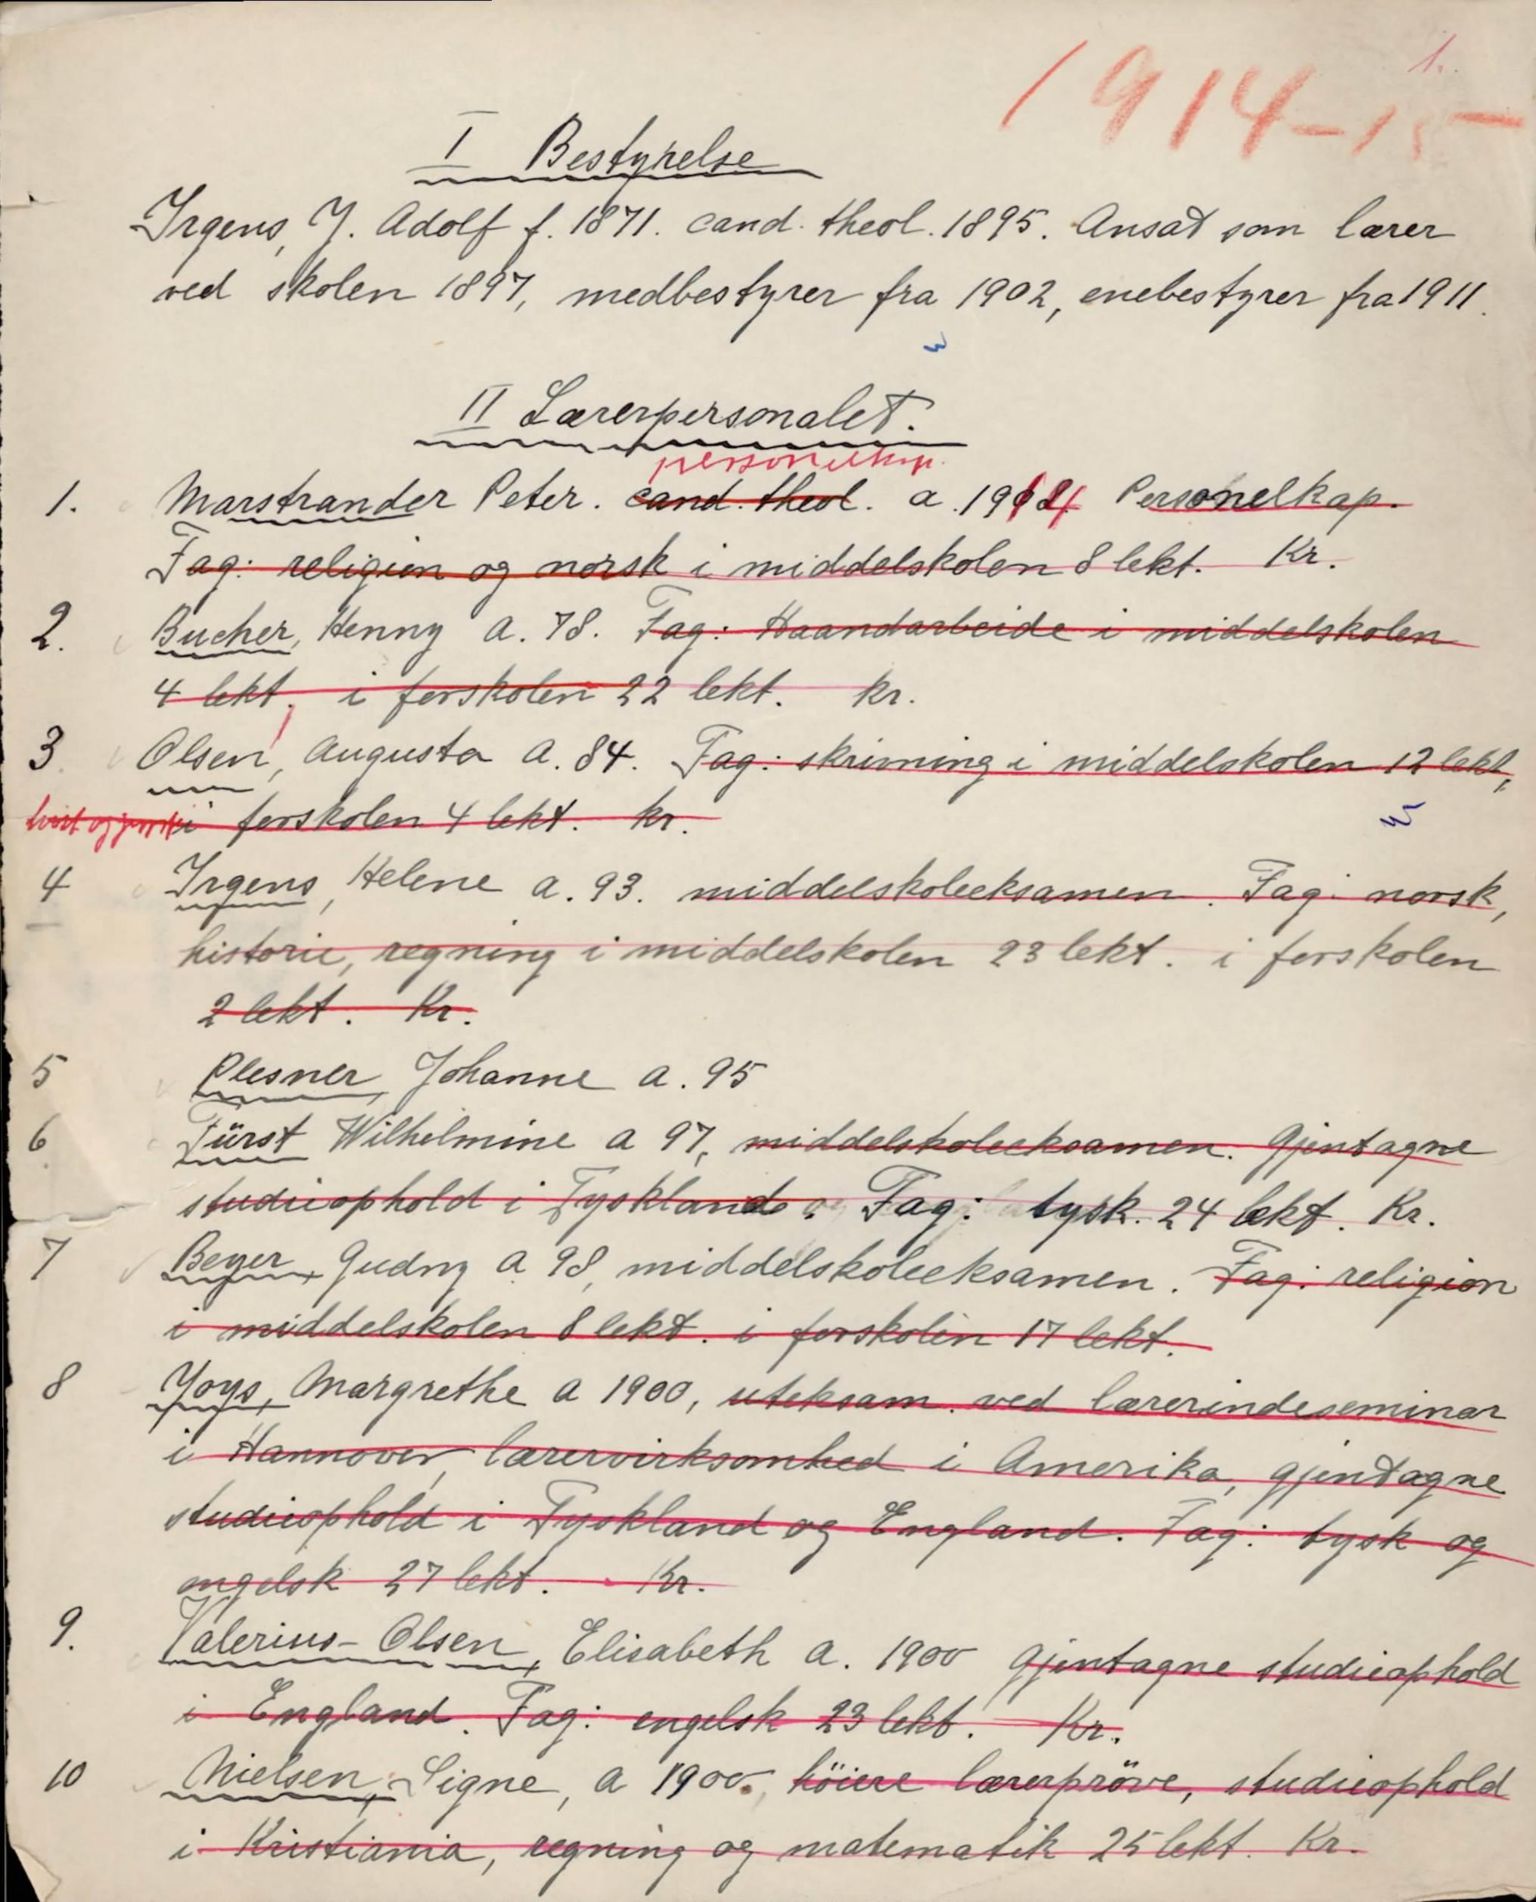 1.
1914-15
I Bestyrelse
Irgens, J. Adolf f. 1871. cand. theol. 1895. Ansat som lærer
ved skolen 1897, medbestyrer fra 1902, enebestyrer fra 1911.
II Lærerpersonalet.
personelkap.
1. Marstrander Peter. cand. theol. a. 1914 Personelkap.
Fag: religion og norsk i middelskolen 8 lekt. Kr.
2. Bucher, Henny a. 78. Fag: Haandarbeide i middelskolen
4 lekt. i forskolen 22 lekt. kr.
3 Olsen, Augusta a. 84. Fag: skrivning i middelskolen 12 lekt,
i forskolen 4 lekt. kr.
4 Irgens, Helene a. 93. middelskoleeksamen. Fag: norsk,
historie, regning i middelskolen 23 lekt. i forskolen
2 lekt. Kr.
5 Plesner, Johanne a. 95
6 Fürst Wilhelmine a 97, middelskoleeksamen. Gjentagne
studieophold i Tyskland. Fag: tysk. 24 lekt. Kr.
7 Beyer, Gudny a 98, middelskoleeksamen. Fag: religion
i middelskolen 8 lekt. i forskolen 17 lekt.
8 Joys, Margrethe a 1900, uteksam. ved lærerindeseminar
i Hannover, lærervirksomhed i Amerika, gjentagne
studieophold i Tyskland og England. Fag: tysk og
engelsk 27 lekt. Kr.
9. Valerius-Olsen, Elisabeth a. 1900 Gjentagne studieophold
i England. Fag: engelsk 23 lekt. Kr.
10 Nielsen, Signe, a 1900, höiere lærerpröve, studieophold
i Kristiania, regning og matematik 25 lekt. Kr.